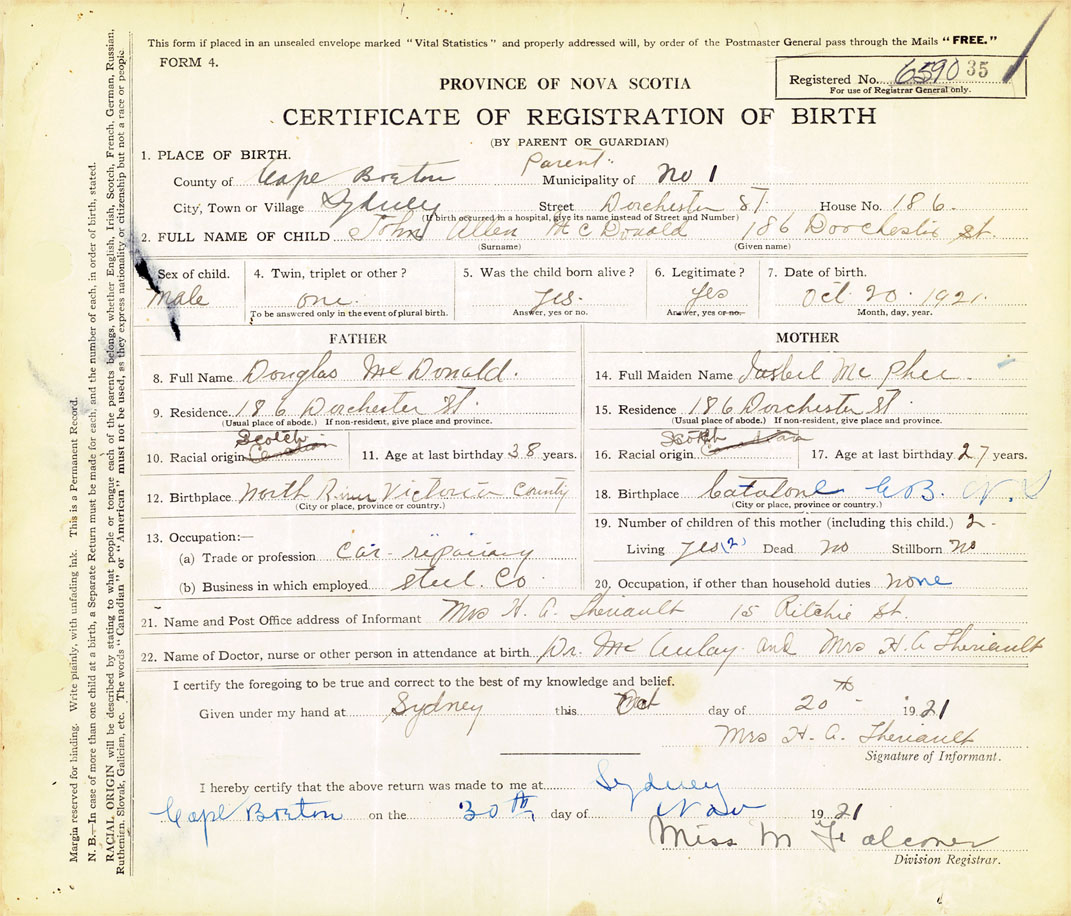 This form if placed in an unsealed envelope marked "Vital Statistics" and properly addressed will, by order of the Postmaster General pass through the Mails "FREE."
FORM 4.
Registered No. 6590 35
For use of Registrar General only.
PROVINCE OF NOVA SCOTIA
CERTIFICATE OF REGISTRATION OF BIRTH
(BY PARENT OR GUARDIAN)
Parent
1. PLACE OF BIRTH.
County of Cape Breton Municipality of No 1
City, Town or Village Sydney Street Dorchester St. House No. 186.
(If birth occurred in a hospital, give its name instead of Street and Number)
2. FULL NAME OF CHILD John Allen McDonald 186 Doorchester St.
(Surname) (Given name)
Sex of child. 4. Twin, triplet or other? 5. Was the child born alive? 6. Legitimate? 7. Date of birth.
Male one. Yes. Yes Oct. 20. 1921.
To be answered only in the event of plural birth. Answer, yes or no. Answer, yes or no. Month, day, year.
FATHER
8. Full Name Douglas McDonald.
9. Residence 186 Dorchester St.
(Usual place of abode.) If non-resident, give place and province.
Scotch
10. Racial origin 11. Age at last birthday 38 years.
12. Birthplace North River Victoria County
(City or place, province or country.)
13. Occupation:—
(a) Trade or profession Car-repairing
(b) Business in which employed Steel. Co.
MOTHER
14. Full Maiden Name Isabel McPhee.
15. Residence 186 Dorchester St
(Usual place of abode.) If non-resident, give place and province.
Scotch
16. Racial origin 17. Age at last birthday 27 years.
18. Birthplace Catalone C.B. N.S
(City or place, province or country.)
19. Number of children of this mother (including this child.) 2.
Living Yes (2) Dead No Stillborn No
20. Occupation, if other than household duties none
21. Name and Post Office address of Informant Mrs H. A. Theriault 15 Ritchie St.
22. Name of Doctor, nurse or other person in attendance at birth Dr. McAulay and Mrs H. A Theriault
I certify the foregoing to be true and correct to the best of my knowledge and belief.
Given under my hand at Sydney this Oct day of 20th 1921
Mrs H. A. Theriault
Signature of Informant.
I hereby certify that the above return was made to me at Sydney
Cape Breton on the 30th day of Nov 1921
Miss M Falconer
Division Registrar.
Margin reserved for binding. Write plainly, with unfading ink. This is a Permanent Record.
N. B.—In case of more than one child at a birth, a Separate Return must be made for each, and the number of each, in order of birth, stated.
RACIAL ORIGIN will be described by stating to what people or tongue each of the parents belongs, whether English, Irish, Scotch, French, German, Russian,
Ruthenian, Slovak, Galician, etc. The words "Canadian" or "American" must not be used, as they express nationality or citizenship but not a race or people